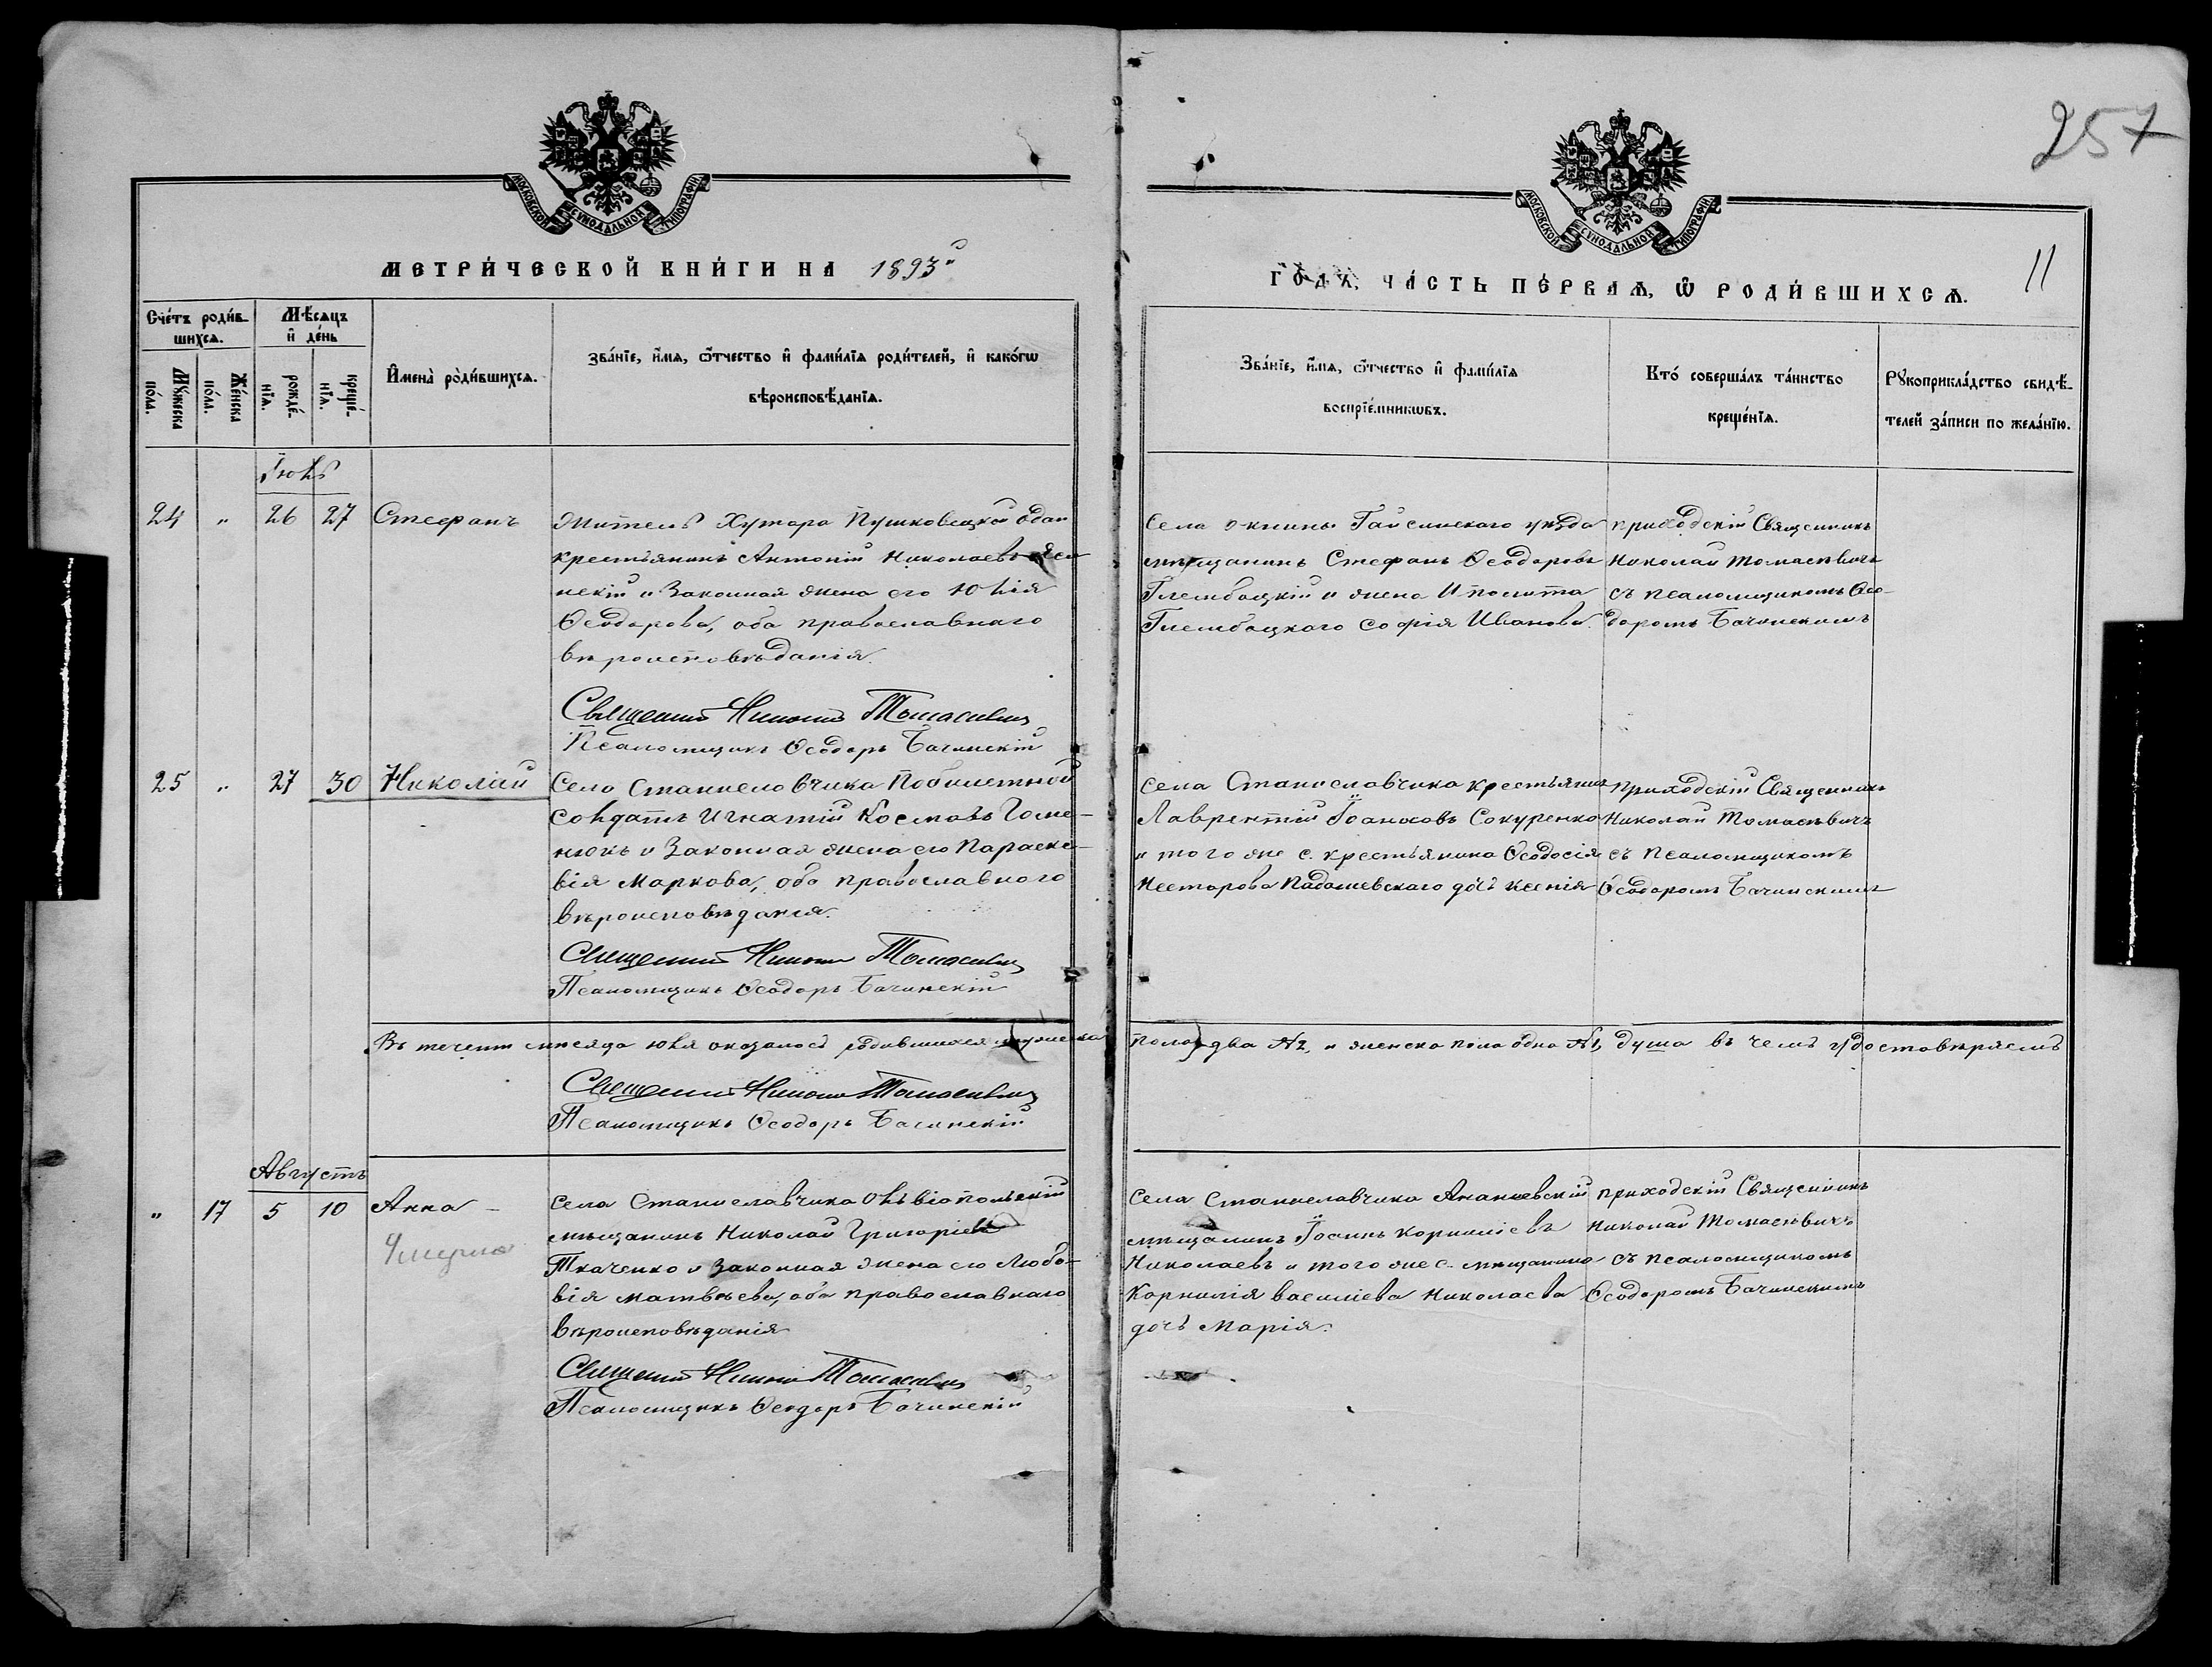 257
МОСКОВСКОЙ СѴНОДАЛЬНОЙ ТИПОГРАФІИ
МОСКОВСКОЙ СѴНОДАЛЬНОЙ ТИПОГРАФІИ
МЕТРИ́ЧЕСКОЙ КНИ́ГИ НА 1893й
ГО́ДЪ, ЧА́СТЬ ПЕ́РВАѦ, Ѡ҆ РОДИ́ВШИХСѦ.
11
Сче́тъ роди́в-
шихсѧ.
Мꙋ́жеска по́ла.
Же́нска по́ла.
Мѣ́сѧцъ
и҆ де́нь
рожде́-нїѧ.
креще́-нїѧ.
И҆мена̀ роди́вшихсѧ.
Зва́нїе, и҆́мѧ, ѻ҆́тчество и҆ фами́лїѧ роди́телей, и҆ како́гѡ
вѣроисповѣ́данїѧ.
Зва́нїе, и҆́мѧ, ѻ҆́тчество и҆ фами́лїѧ
воспрїе́мникѡвъ.
Кто́ соверша́лъ та́инство
креще́нїѧ.
Рꙋкоприкла́дство свидѣ́-
телей за́писи по жела́нїю.
Іюль
24 " 26 27 Стефанъ
Житель Хутора Пушковецкой
крестьянинъ Антоній Николаевъ
нскій и Законная жена его Юлія
Ѳеодорова, оба православнаго
вѣроисповѣданія.
Священникъ Николай Томасевичъ
Псаломщикъ Ѳеодоръ Бачинскій
Села Окнины Гайсинскаго уѣзда
мѣщанинъ Стефанъ Ѳеодоровъ
Глембоцкій и жена Иполита
Глембоцкаго Софія Иванова.
приходскій Священникъ
Николай Томасѣвичъ
съ псаломщикомъ Ѳео-
доромъ Бачинскимъ
25 " 27 30 Николай
Село Станиславчика Побилетной
солдатъ Игнатій Космовъ Гоме-
нюкъ и Законная жена его Параске-
вія Маркова, оба православнаго
вѣроисповѣданія.
Священникъ Николай Томасевичъ
Псаломщикъ Ѳеодоръ Бачинскій
Села Станиславчика крестьянинъ
Лаврентій Іоанновъ Сокуренко
и того же с. крестьянина Ѳеодосія
Несторова Падашевскаго дочь Ксенія
приходскій Священникъ
Николай Томасѣвичъ
съ псаломщикомъ
Ѳеодоромъ Бачинскимъ
Въ теченіи мѣсяца Юля оказалось родившихся мужеска пола два №2, и женска пола одна №1, душа въ чемъ удостовѣряемъ
Священникъ Николай Томасевичъ
Псаломщикъ Ѳеодоръ Бачинскій
Августъ
" 17 5 10 Анна
Умерла
Села Станиславчика Ольвіопольскій
мѣщанинъ Николай Григоріевъ
Ткаченко и Законная жена его Любо-
вія Матвѣева, оба православнаго
вѣроисповѣданія
Священникъ Николай Томасевичъ
Псаломщикъ Ѳеодоръ Бачинскій
Села Станиславчика Ананьевскій
мѣщанинъ Іоаннъ Корниліевъ
Николаевъ и того же с. мѣщанина
Корнилія Василіева Николаева
дочь Марія.
приходскій Священникъ
Николай Томасѣвичъ
съ псаломщикомъ
Ѳеодоромъ Бачинскимъ